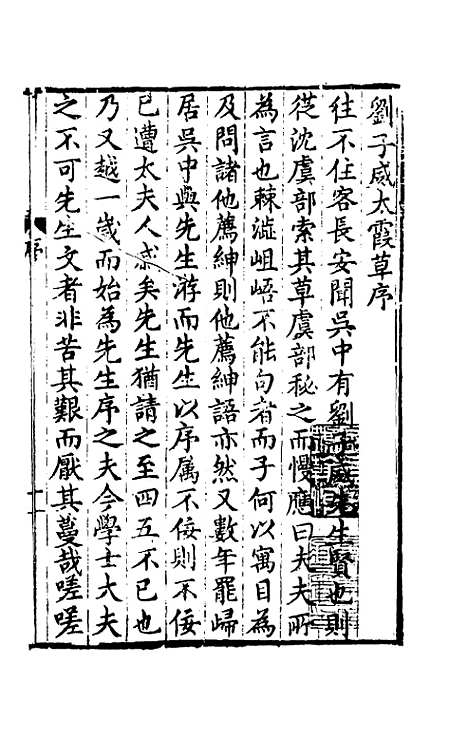 劉子威太霞草序
往不佞客長安聞吳中有劉子威先生賢也則
從沈虞部索其草虞部秘之而慢應曰夫夫所
為言也棘澁岨峿不能句者而子何以寓目為
及問諸他薦紳則他薦紳語亦然又數年罷歸
居吳中與先生游而先生以序属不佞則不佞
已遭太夫人慼矣先生猶請之至四五不已也
乃又越一歲而始為先生序之夫今學士大夫
之不可先生文者非苦其艱而厭其蔓哉嗟嗟
序